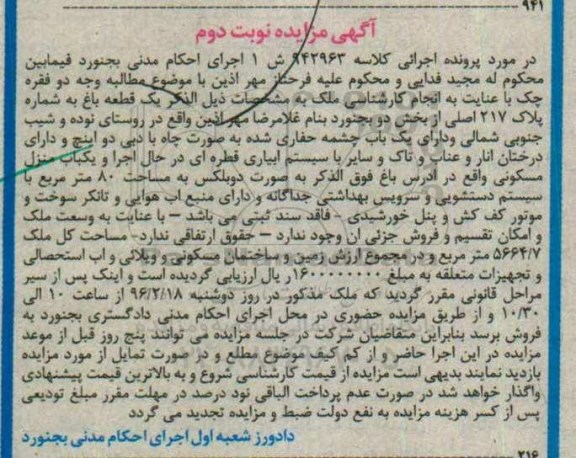 ۹۴۱
آگهی مزایده نوبت دوم
در مورد پرونده اجرائی کلاسه ۹۴۲۹۶۳ ش ۱ اجرای احکام مدنی بجنورد فیمابین
محکوم له مجید فدایی و محکوم علیه فرحناز مهر اذین با موضوع مطالبه وجه دو فقره
چک با عنایت به انجام کارشناسی ملک به مشخصات ذیل الذکر یک قطعه باغ به شماره
پلاک ۲۱۷ اصلی از بخش دو بجنورد بنام غلامرضا مهر اذین واقع در روستای نوده و شیب
جنوبی شمالی ودارای یک باب چشمه حفاری شده به صورت چاه با دبی دو اینچ و دارای
درختان انار و عناب و تاک و سایر با سیستم ابیاری قطره ای در حال اجرا و یکباب منزل
مسکونی واقع در آدرس باغ فوق الذکر به صورت دوبلکس به مساحت ۸۰ متر مربع با
سیستم دستشویی و سرویس بهداشتی جداگانه و دارای منبع اب هوایی و تانکر سوخت و
موتور کف کش و پنل خورشیدی - فاقد سند ثبتی می باشد – با عنایت به وسعت ملک
و امکان تقسیم و فروش جزئی ان وجود ندارد – حقوق ارتفاقی ندارد- مساحت کل ملک
۵۶۶۴/۷ متر مربع و در مجموع ارزش زمین و ساختمان مسکونی و ویلائی و اب استحصالی
و تجهیزات متعلقه به مبلغ ۱۶۰۰۰۰۰۰۰۰ر یال ارزیابی گردیده است و اینک پس از سیر
مراحل قانونی مقرر گردید که ملک مذکور در روز دوشنبه ۹۶/۲/۱۸ از ساعت ۱۰ الی
۱۰/۳۰ و از طریق مزایده حضوری در محل اجرای احکام مدنی دادگستری بجنورد به
فروش برسد بنابراین متقاضیان شرکت در جلسه مزایده می توانند پنج روز قبل از موعد
مزایده در این اجرا حاضر و از کم کیف موضوع مطلع و در صورت تمایل از مورد مزایده
بازدید نمایند بدیهی است مزایده از قیمت کارشناسی شروع و به بالاترین قیمت پیشنهادی
واگذار خواهد شد در صورت عدم پرداخت الباقی نود درصد در مهلت مقرر مبلغ تودیعی
پس از کسر هزینه مزایده به نفع دولت ضبط و مزایده تجدید می گردد
دادورز شعبه اول اجرای احکام مدنی بجنورد
۲۱۶